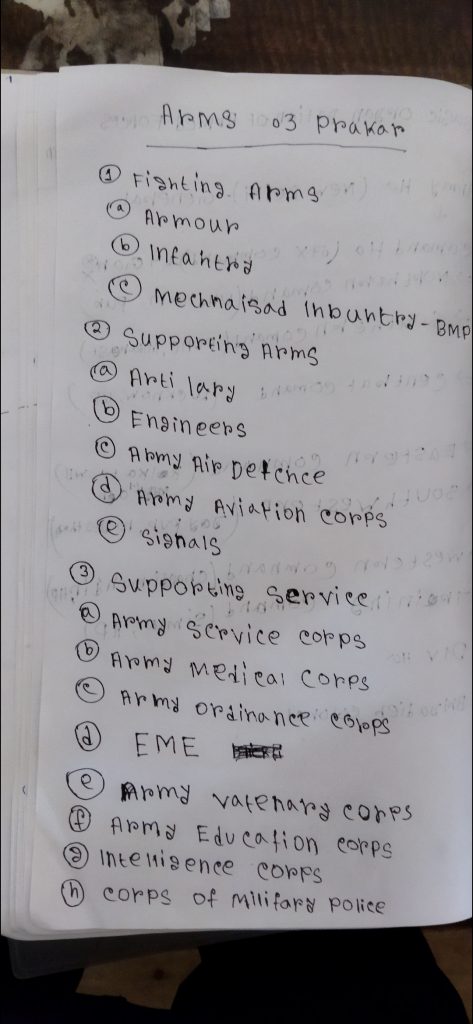 Arms 03 Prakar
① Fighting Arms
ⓐ Armour
ⓑ Infantry
ⓒ Mechnaisad Inbuntry - BMP
② Supporting Arms
ⓐ Arti lary
ⓑ Engineers
ⓒ Army Air Defence
ⓓ Army Aviation Corps
ⓔ Signals
③ Supporting Service
ⓐ Army Service Corps
ⓑ Army Medical Corps
ⓒ Army Ordinance Corps
ⓓ EME
ⓔ Army Vatenary Corps
ⓕ Army Education Corps
ⓖ Intelligence Corps
ⓗ Corps of Military Police